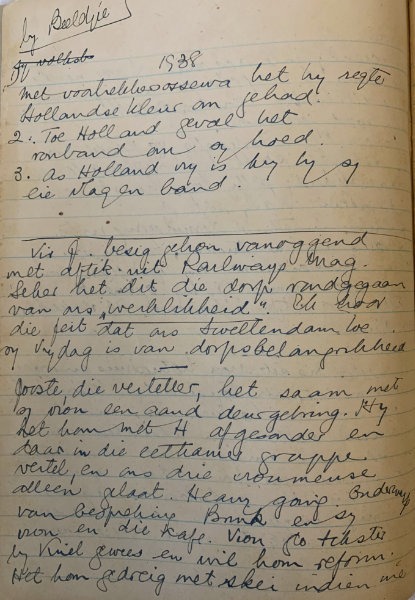 by Beeldjie
1938
met voortrekkerossewa het hy regte
Hollandse kleur om gehad.
2. Toe Holland geval het
rouband om sy hoed.
3. As Holland vry is kry hy sy
eie vlag en band.
Vir J. besig gehou vanoggend
met artik. uit Railways Mag.
Seker het dit die dorp rondgegaan
van ons "werklikheid". Ek hoor
die feit dat ons Swellendam toe
sy Vrydag is van dorpsbelangrikheid
Jooste, die verletter, het saam met
sy vrou een aand deurgebring. Hy
het hom met H afgesonder en
daar in die eetkamer grappe
vertel, en ons drie vroumense
alleen gelaat. Heavy going. Onderwerp
van bespreking Brink en sy
vrou en die kafe. Vrou glo
by Vriel gewees en wil hom reform.
Het hom gedreig met skei indien nie